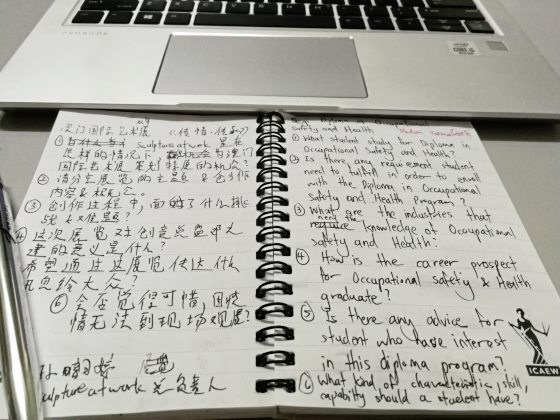 澳门国际艺术双年展 《传情・传》
① sculpture at work 是在
怎样的情况下, 与澳门
国际艺术展 策划特展的机会?
② 请分享展览的主题 & 创作
内容 & 核心。
③ 创作过程中,面对了什么挑
战以及难题?
④ 这次展览对创意
的意义是什么?
希望通过这展览传达什么
讯息给大众?
⑥ 会否觉得可惜,因疫
情无法到现场观展?
sculpture at work 负责人
Diploma in Occupational
Safety and Health
① What student study for Diploma in
Occupational Safety & Health?
② Is there any requirement student
need to fulfill in order to enroll
with the Diploma in Occupational
Safety and Health Program?
③ What are the industries that
need the
require knowledge of Occupational
Safety and Health?
④ How is the career prospect
for Occupational Safety & Health
graduate?
⑤ Is there any advice for
student who have interest
in this diploma program?
⑥ What kind of characteristic, skill,
capability should a student have?
ICAEW
CORE i5